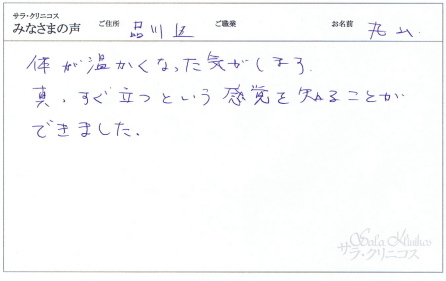 サラ・クリニコス
みなさまの声 ご住所 品川区 ご職業 お名前 丸山
体が温かくなった気がします。
真っすぐ立つという感覚を知ることが
できました。
Sala Klinikos
サラ・クリニコス